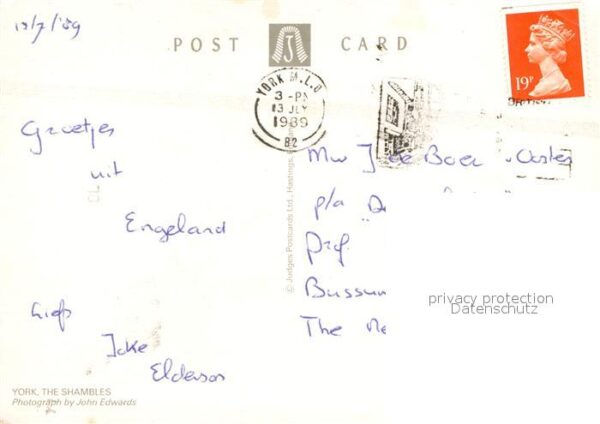 12/7/'89
POST CARD
YORK M.L.O
3 - PM
13 JLY
1989
82
19P
Groetjes
uit
Engeland
liefs
Joke
Elderson
Mw J de Boer - Oosten
p/a "De
Prof.
Bussum
The Ne
© Judges Postcards Ltd., Hastings,
privacy protection
Datenschutz
YORK, THE SHAMBLES
Photograph by John Edwards